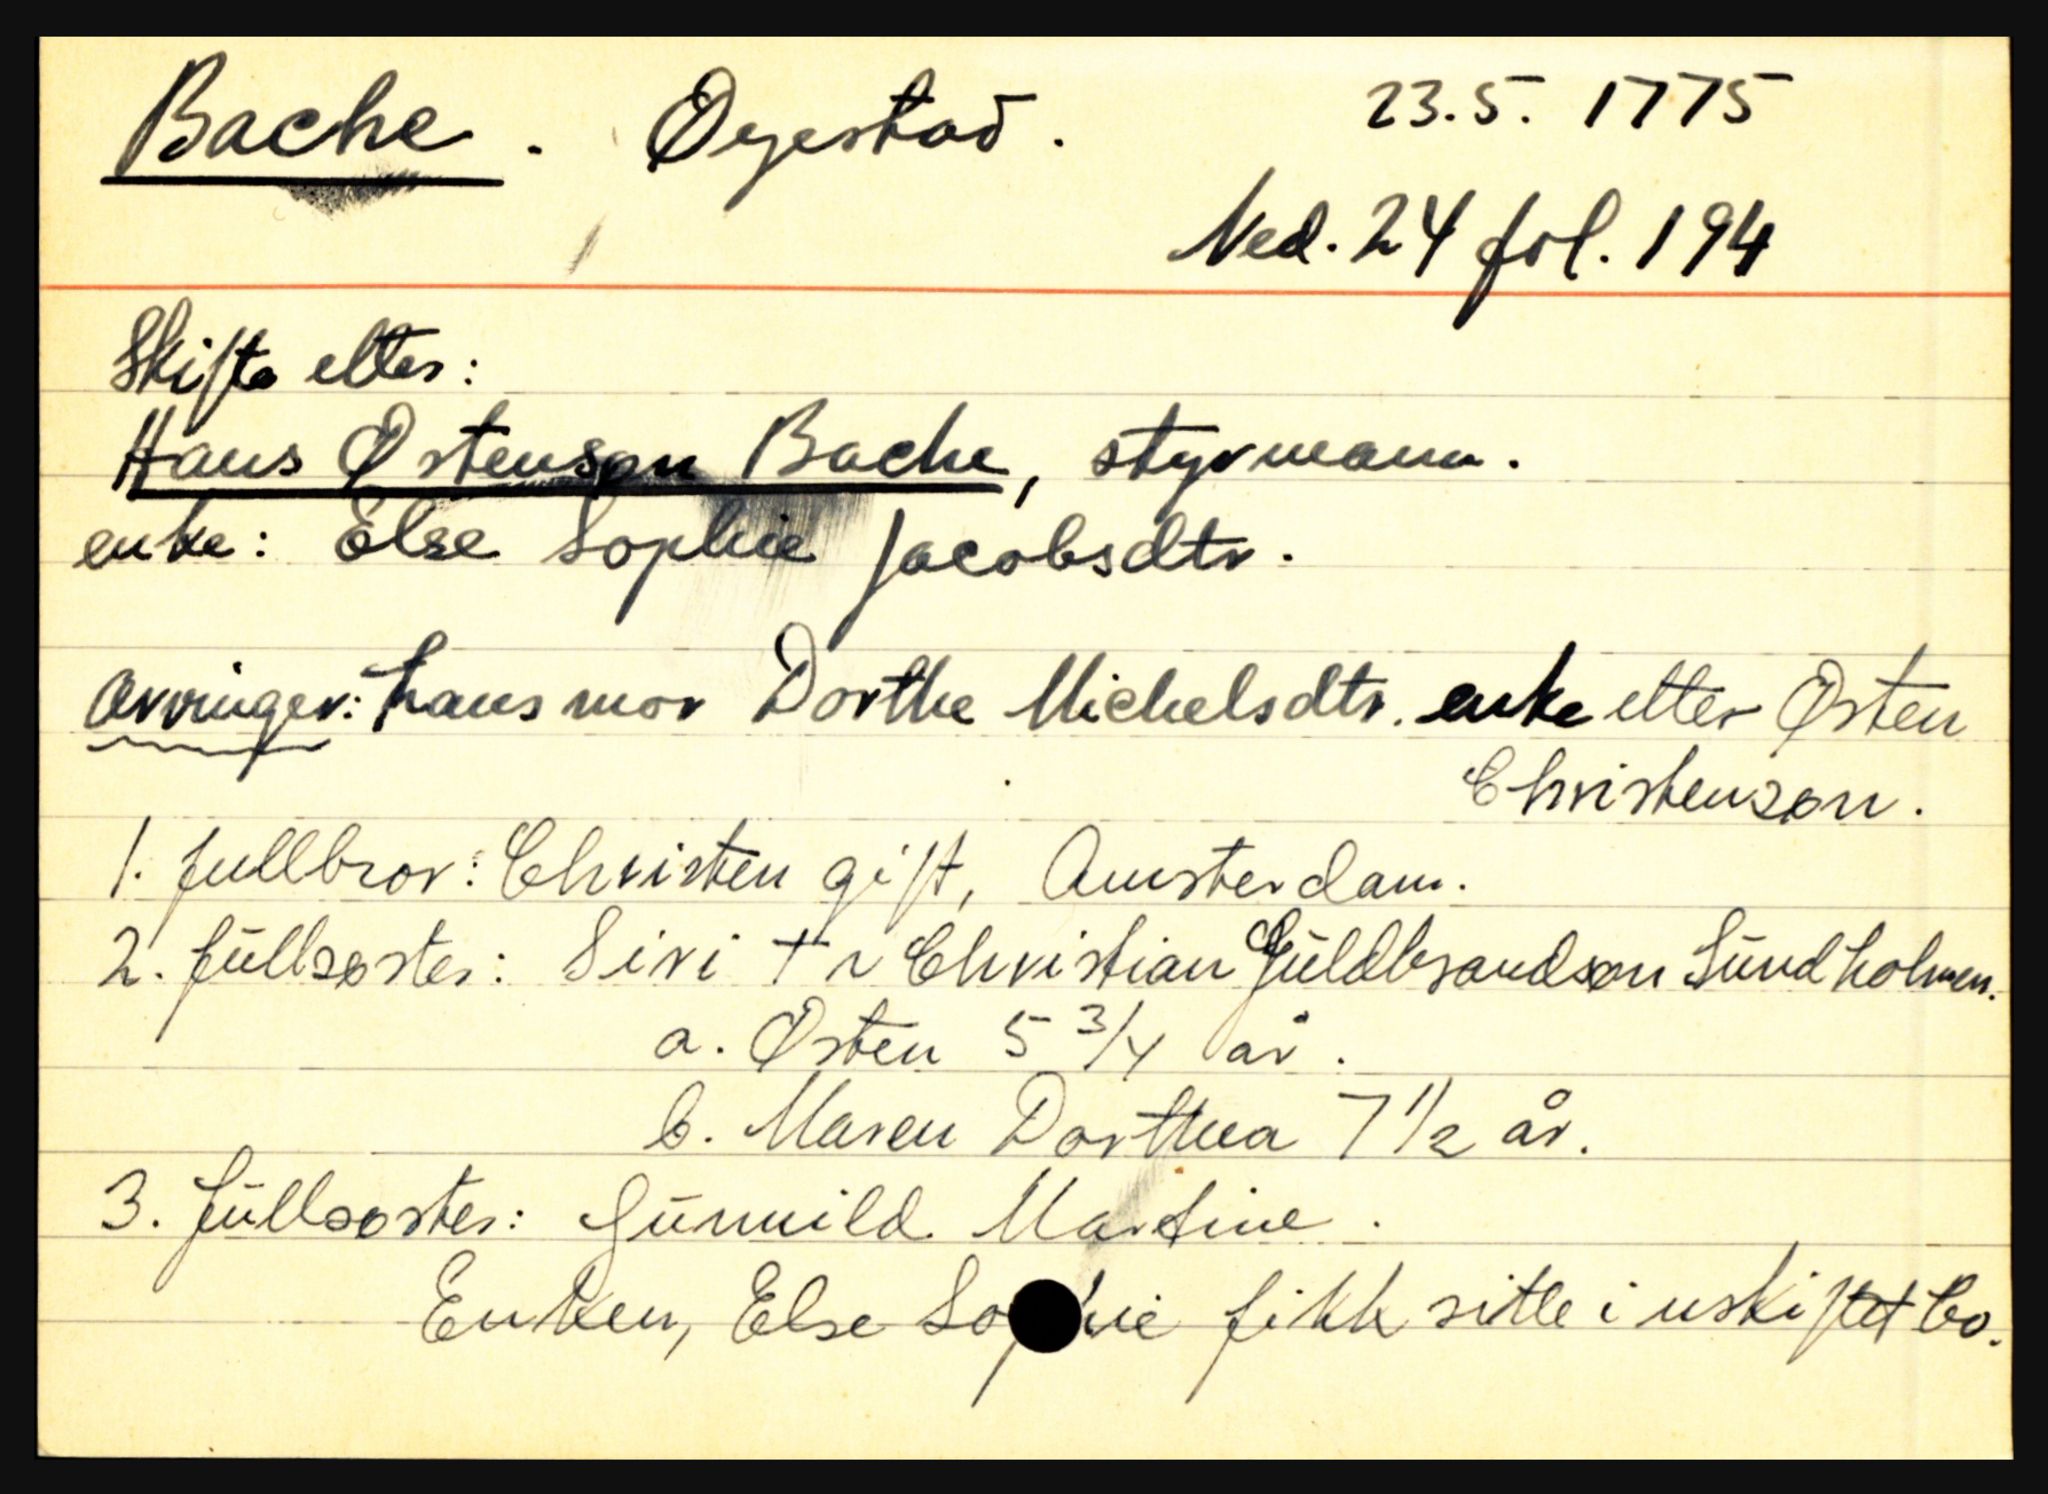 Bache. Øyestad. 23.5. 1775
Ned. 24 fol. 194
Skifte etter:
Hans Østenson Bache, styrmann.
enke: Else Sophie Jacobsdtr.
Arvinger: hans mor Dorthe Michelsdtr. enke etter Østen
Christenson.
1. fullbror: Christen gift, Amsterdam.
2. füllsøster: Siri † v Christian Güldbrandson Sündholmen.
a. Østen 5 3/4 år.
b. Maren Dorthea 7 1/2 år.
3. füllsøster: Günnild Martine.
Enken, Else Sophie fikk sitte i uskiftet bo.